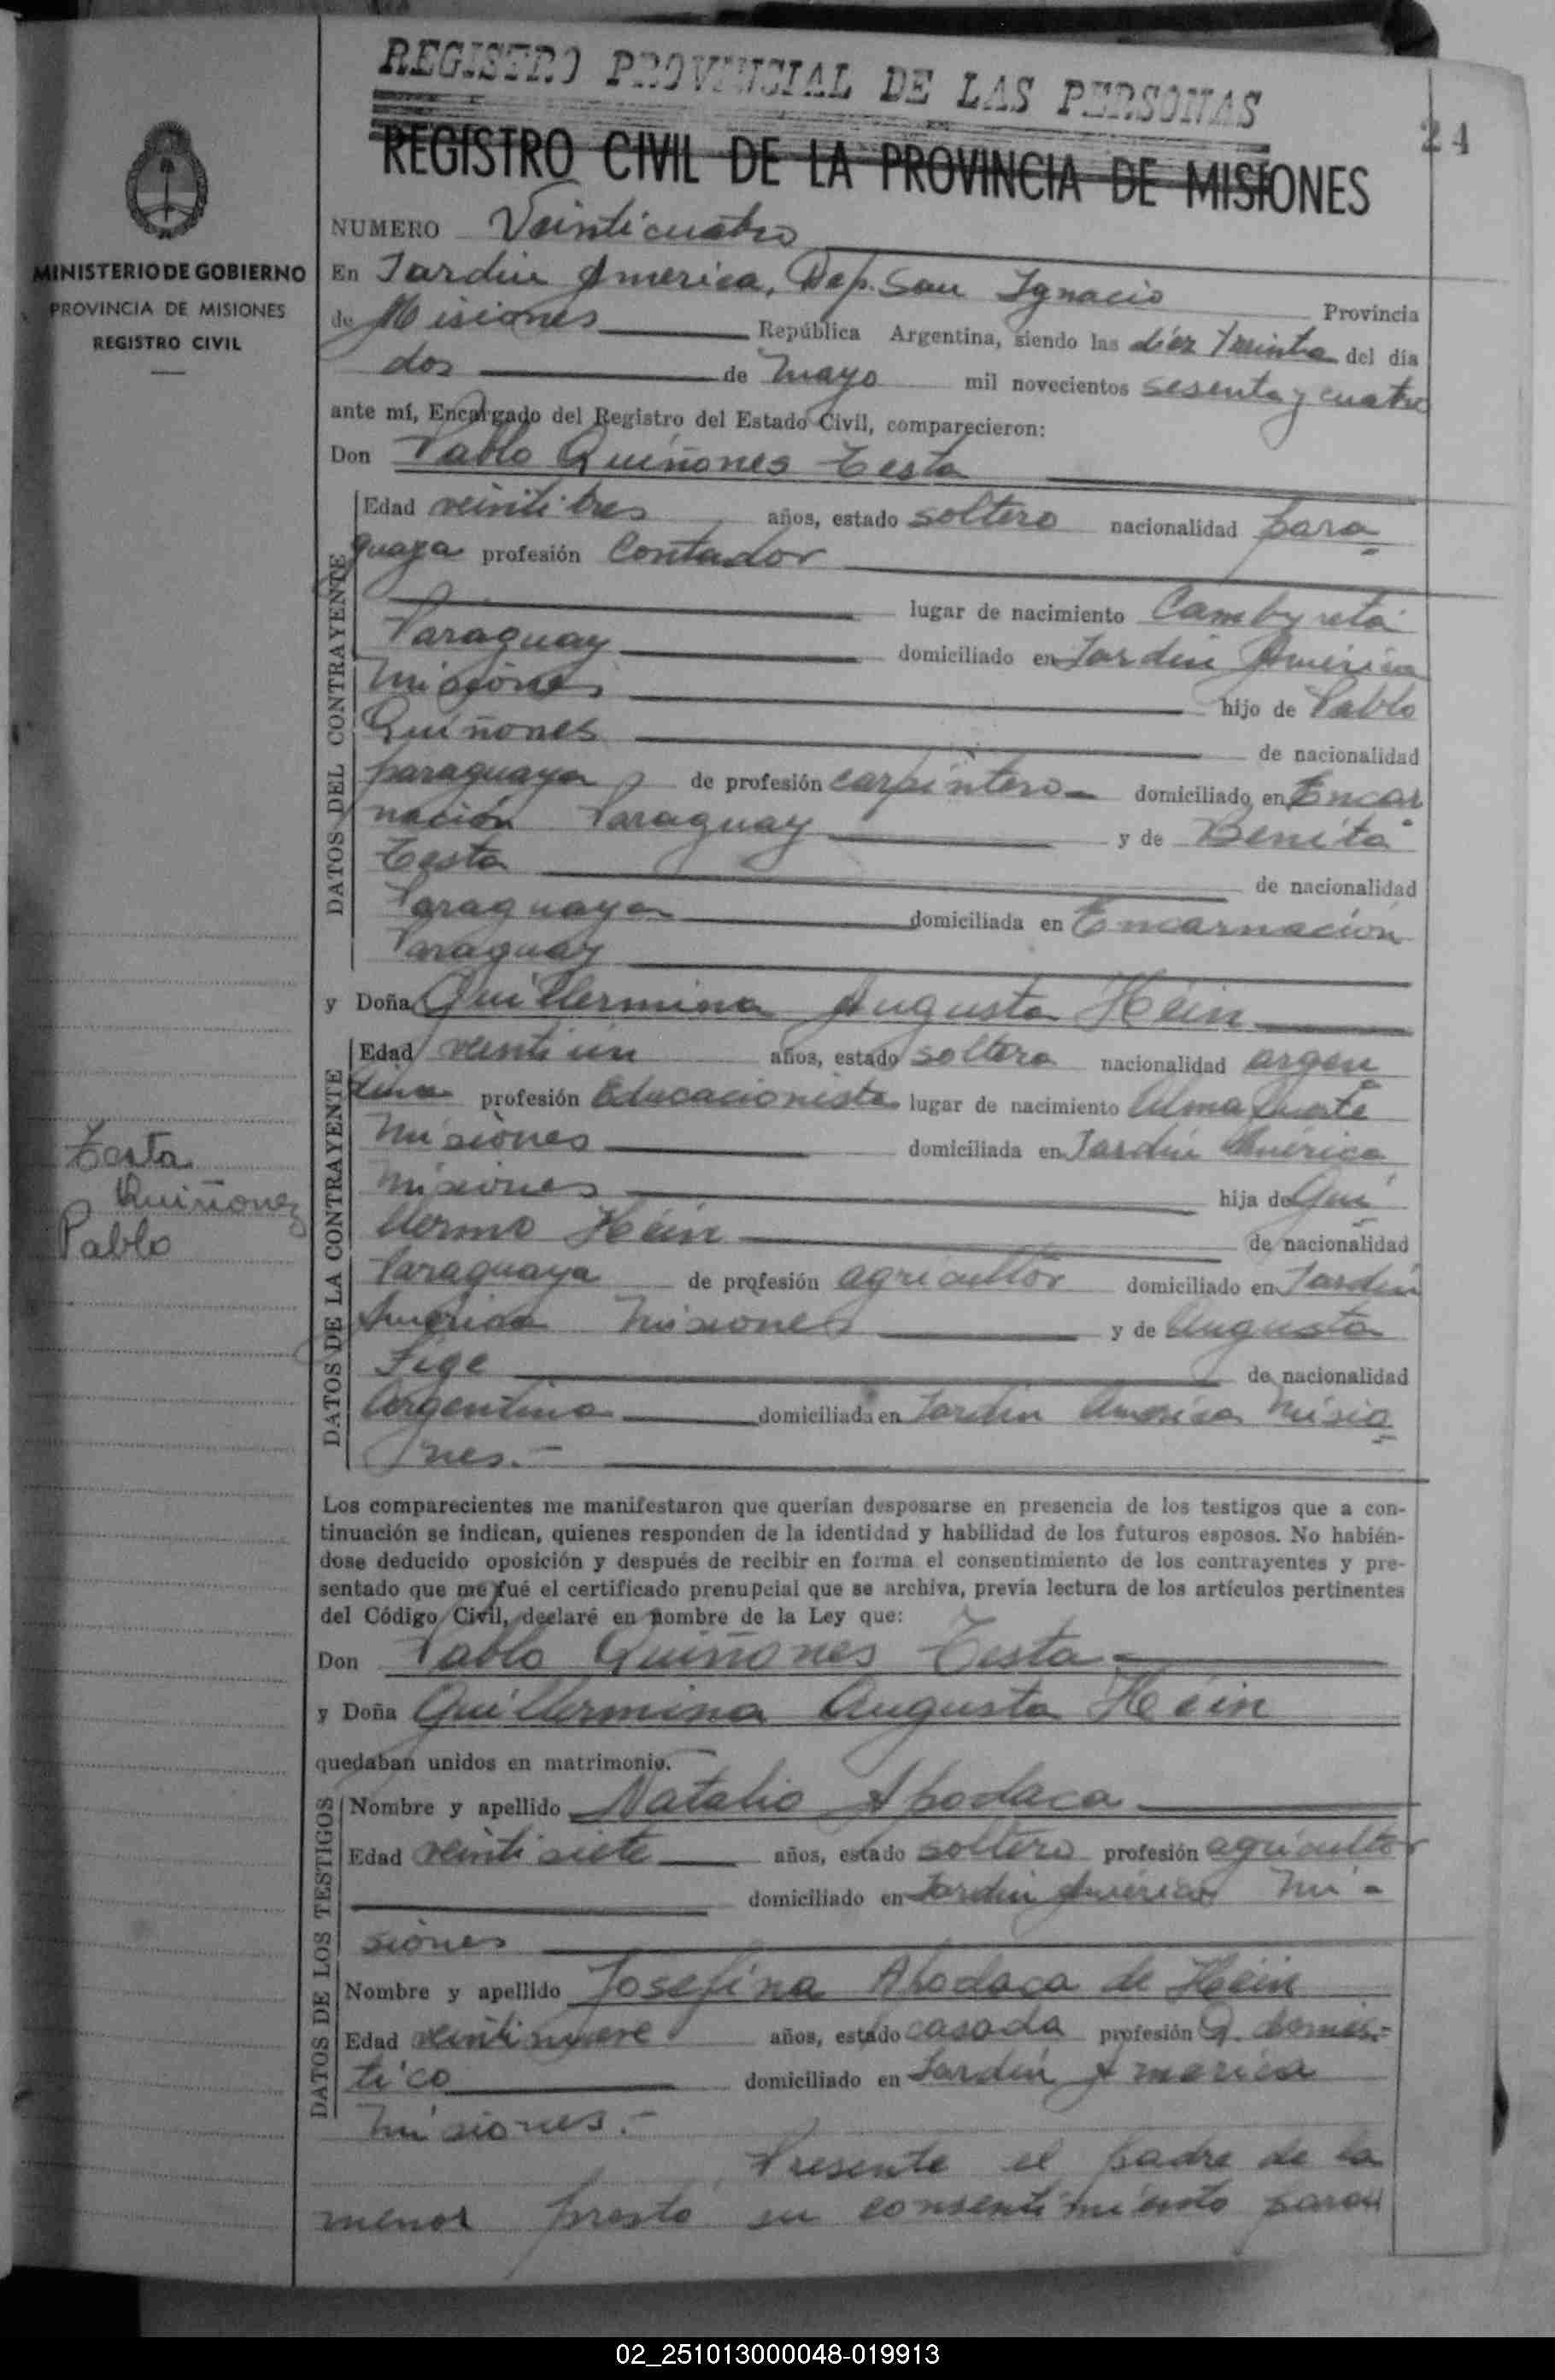 REGISTRO PROVINCIAL DE LAS PERSONAS
REGISTRO CIVIL DE LA PROVINCIA DE MISIONES
24
MINISTERIO DE GOBIERNO
PROVINCIA DE MISIONES
REGISTRO CIVIL
Testa
Quiñonez
Pablo
NUMERO Veinticuatro
En Jardin America, Dep. San Ignacio Provincia
de Misiones República Argentina, siendo las diez treinta del día
dos de Mayo mil novecientos sesenta y cuatro
ante mí, Encargado del Registro del Estado Civil, comparecieron:
Don Pablo Quiñones Testa
DATOS DEL CONTRAYENTE
Edad veintitres años, estado soltero nacionalidad para
guaya profesión Contador
lugar de nacimiento Cambyretá
Paraguay domiciliado en Jardin América
Misiones hijo de Pablo
Quiñones de nacionalidad
paraguaya de profesión carpintero domiciliado en Encar
nación Paraguay y de Benita
Testa de nacionalidad
Paraguaya domiciliada en Encarnación
Paraguay
y Doña Guillermina Augusta Hein
DATOS DE LA CONTRAYENTE
Edad veintiún años, estado soltera nacionalidad argen
tina profesión Educacionista lugar de nacimiento Almafuerte
Misiones domiciliada en Jardín América
Misiones hija de Gui
llermo Hein de nacionalidad
Paraguaya de profesión agricultor domiciliado en Jardín
America Misiones y de Augusta
de nacionalidad
Argentina domiciliada en Jardin America Misio
nes.-
Los comparecientes me manifestaron que querían desposarse en presencia de los testigos que a con-
tinuación se indican, quienes responden de la identidad y habilidad de los futuros esposos. No habién-
dose deducido oposición y después de recibir en forma el consentimiento de los contrayentes y pre-
sentado que me fué el certificado prenupcial que se archiva, previa lectura de los artículos pertinentes
del Código Civil, declaré en nombre de la Ley que:
Don Pablo Quiñones Testa
y Doña Guillermina Augusta Hein
quedaban unidos en matrimonio.
DATOS DE LOS TESTIGOS
Nombre y apellido Natalio Apodaca
Edad veintisiete años, estado soltero profesión agricultor
domiciliado en Jardin América Mi-
siones
Nombre y apellido Josefina Apodaca de Hein
Edad veintinueve años, estado casada profesión Q. domés-
tico domiciliado en Jardín America
Misiones.-
Presente el padre de la
menor prestó su consentimiento para el
02_251013000048-019913